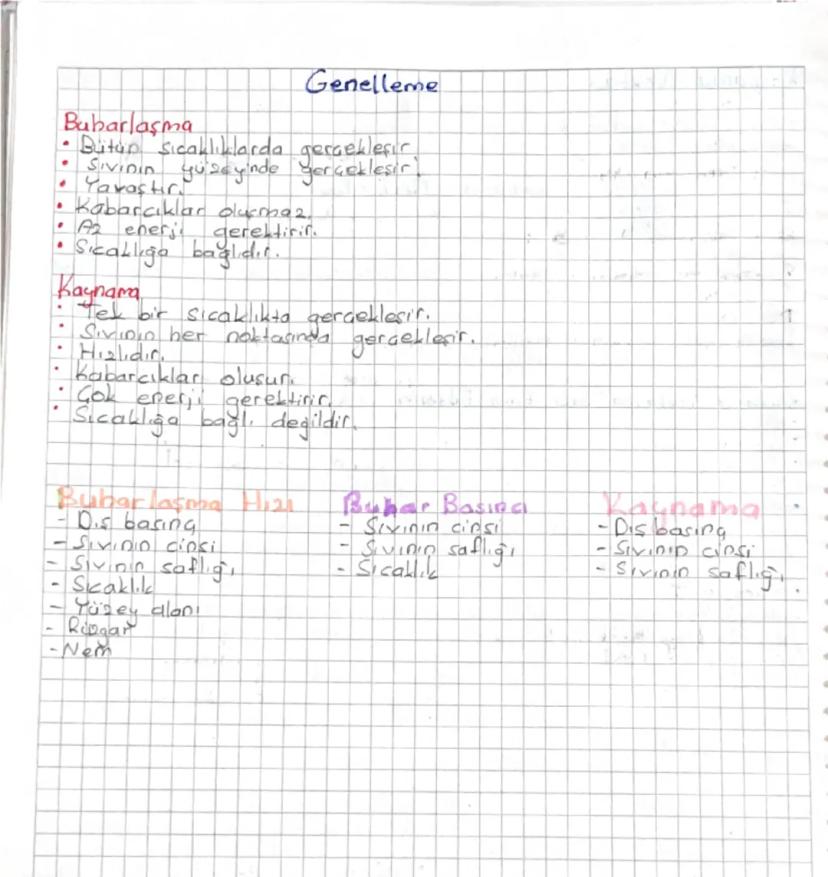 Genelleme
Buharlaşma
• Bütün sıcaklıklarda gerçekleşir
• Sıvının yüzeyinde gerçekleşir.
• Yavaştır.
• Kabarcıklar oluşmaz.
• Az enerji gerektirir.
• Sıcaklığa bağlıdır.
Kaynama
• Tek bir sıcaklıkta gerçekleşir.
• Sıvının her noktasında gerçekleşir.
• Hızlıdır.
• Kabarcıklar oluşur.
• Çok enerji gerektirir.
• Sıcaklığa bağlı değildir.
Buharlaşma Hızı
- Dış basınç
- Sıvının cinsi
- Sıvının saflığı
- Sıcaklık
- Yüzey alanı
- Rüzgar
- Nem
Buhar Basıncı
- Sıvının cinsi
- Sıvının saflığı
- Sıcaklık
Kaynama
- Dış basınç
- Sıvının cinsi
- Sıvının saflığı.